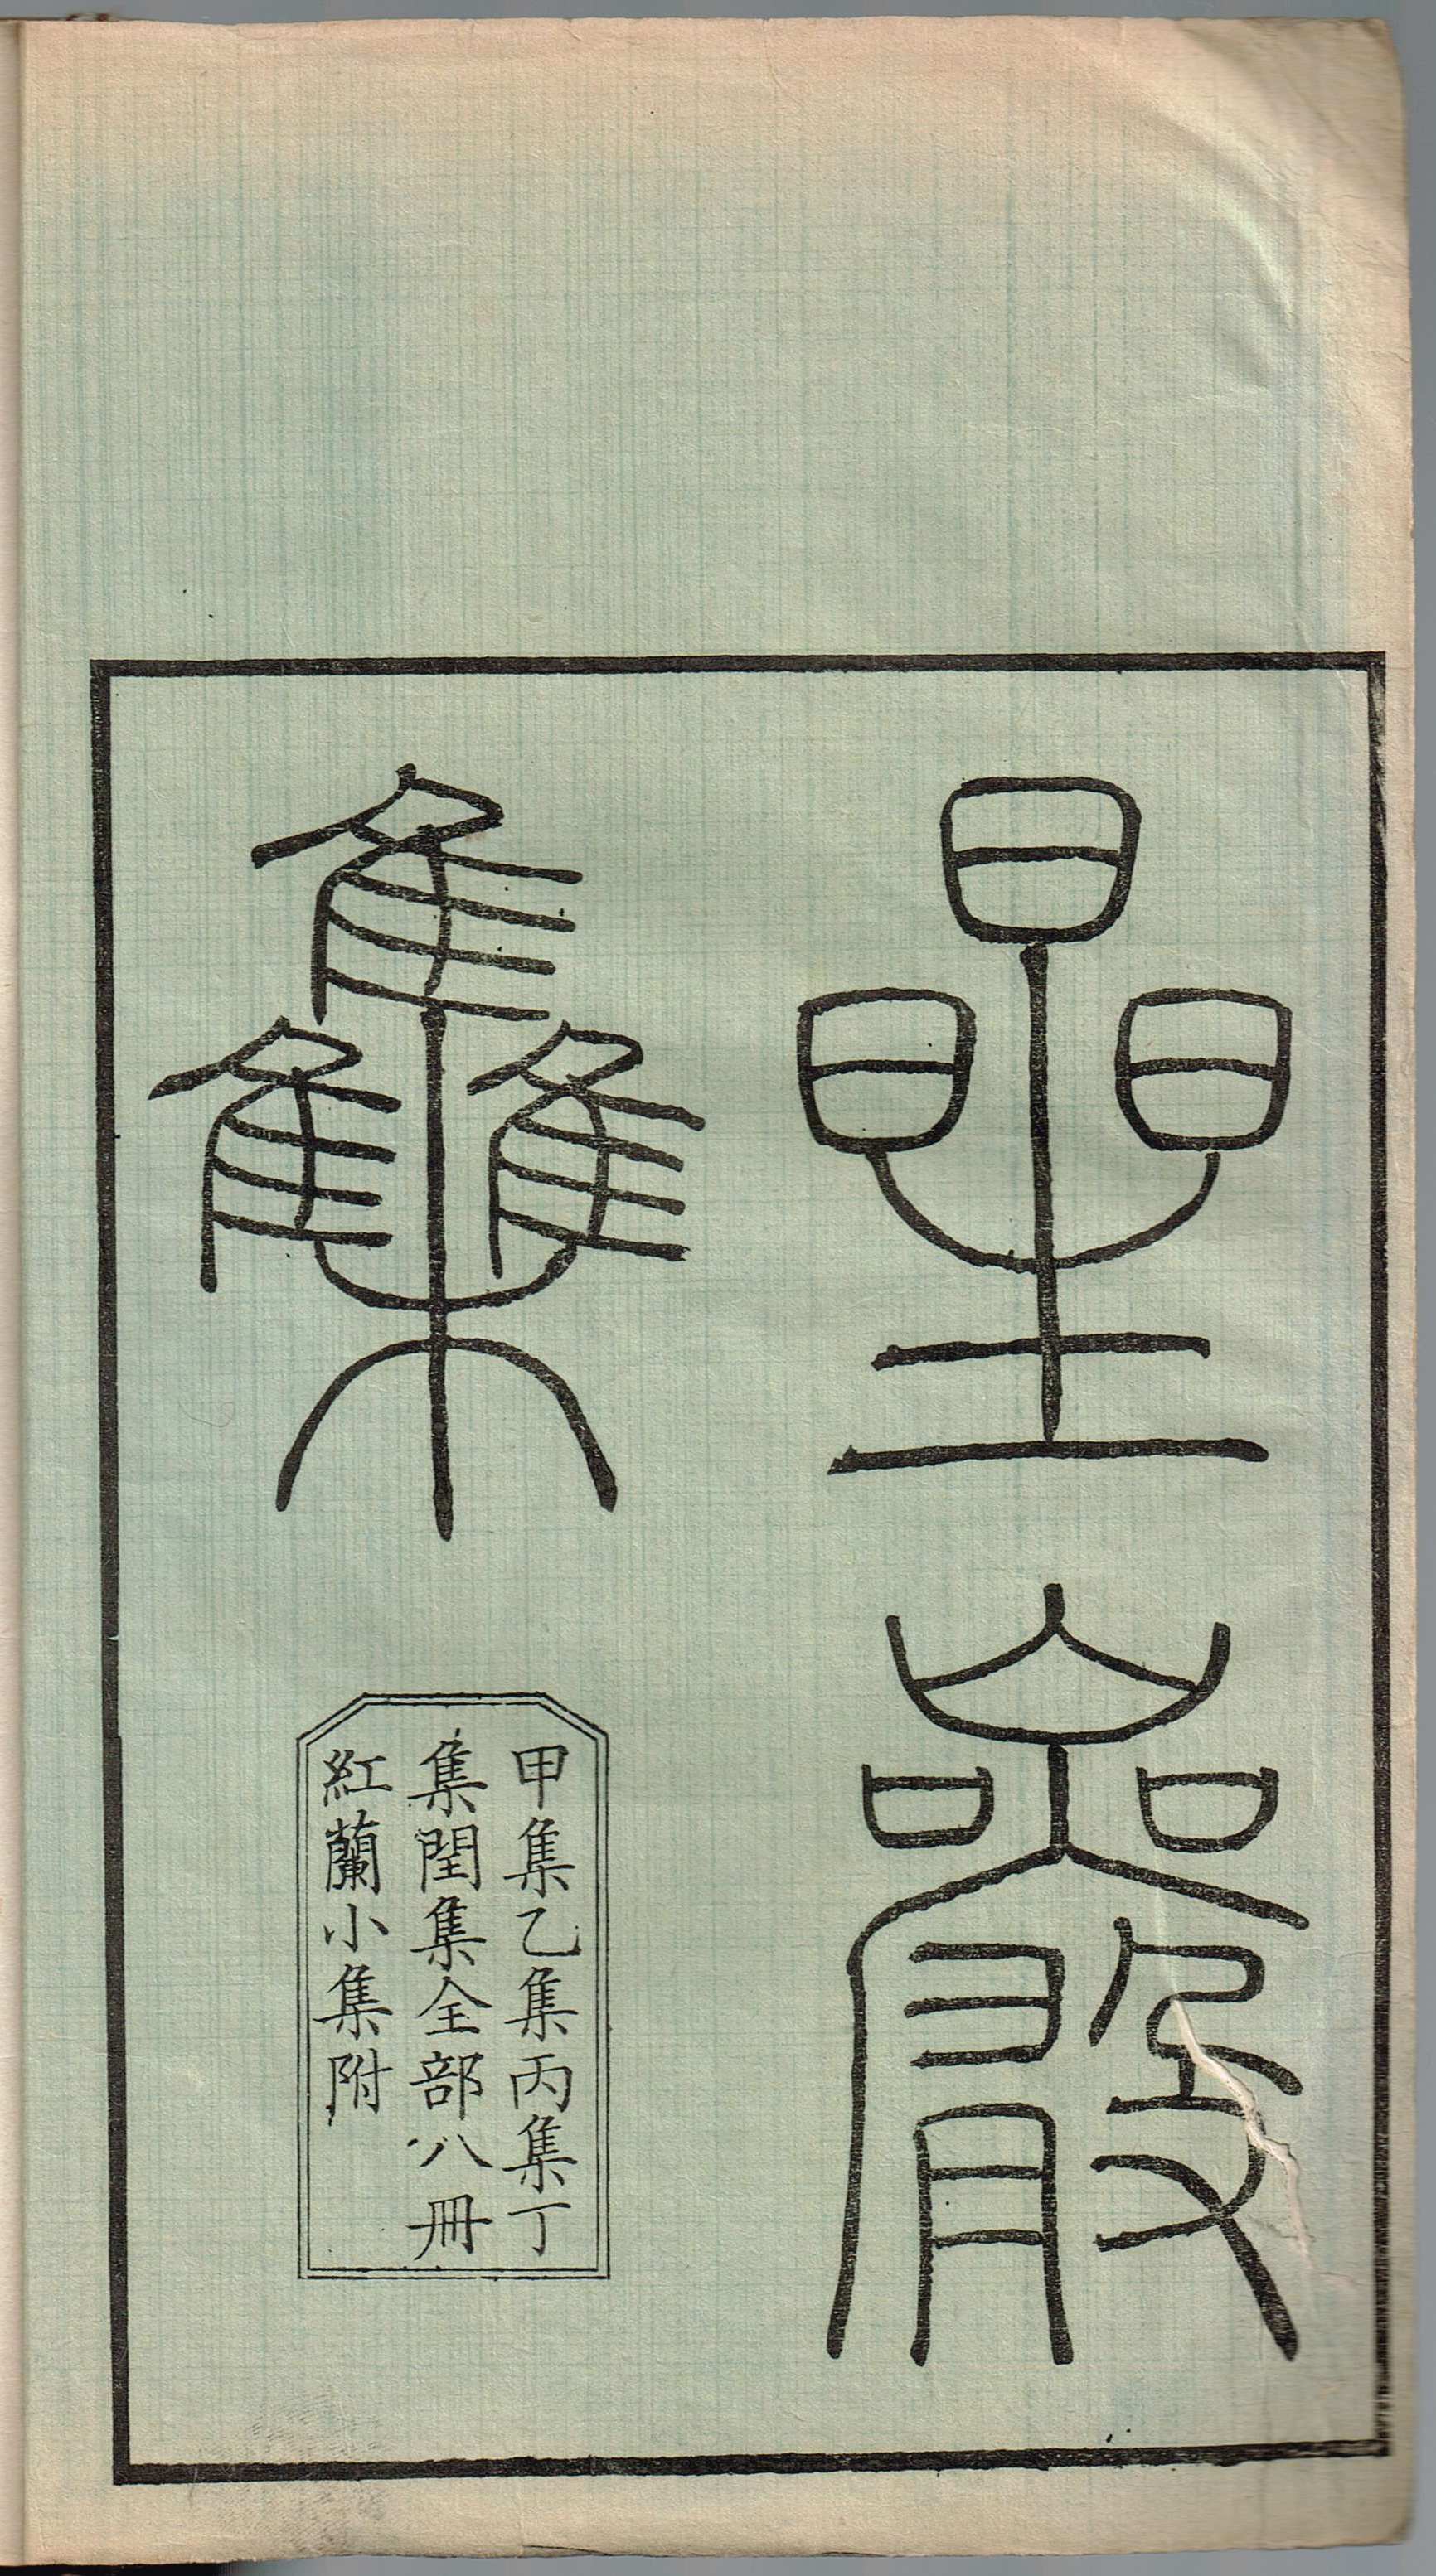 星巖
集
甲集乙集丙集丁
集閏集全部八冊
紅蘭小集附